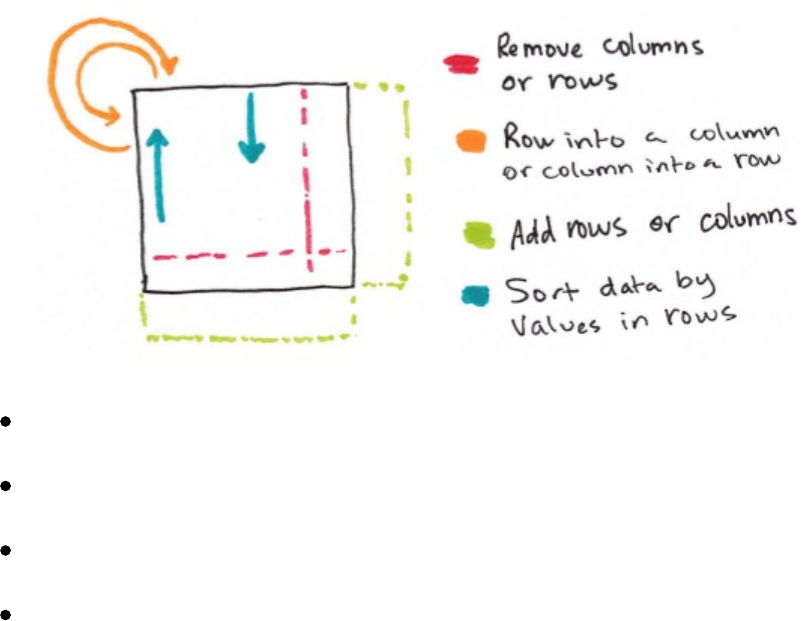 Remove columns
or rows
Row into a column
or column into a row
Add rows or columns
Sort data by
Values in rows